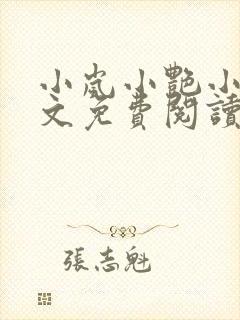 小嵐小艷小
文免費閱讀
張志魁